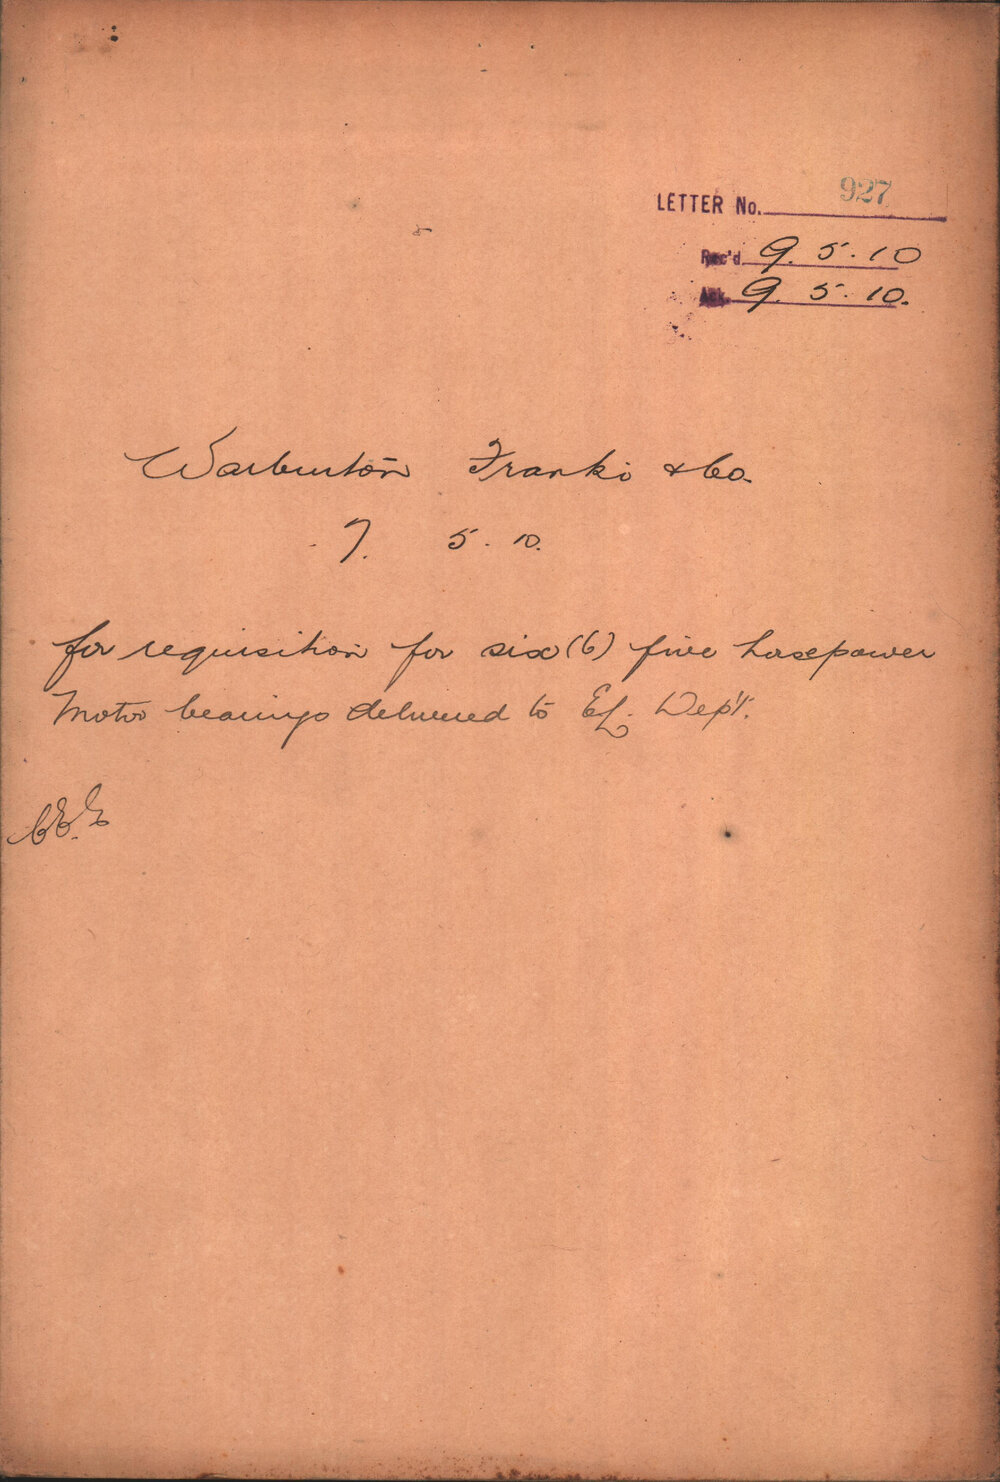 LETTER No. 927
Rec'd. 9. 5. 10
Ack. 9. 5. 10.
Warburton Franki & Co.
7. 5. 10.
for requisition for six (6) five horsepower
Motor bearings delivered to El. Dep't.